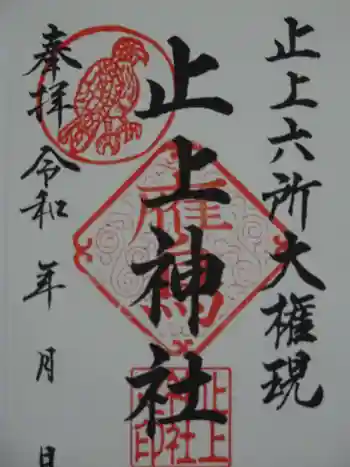 止上六所大権現
止上神社
奉拝 令和 年 月 日
止上
神社